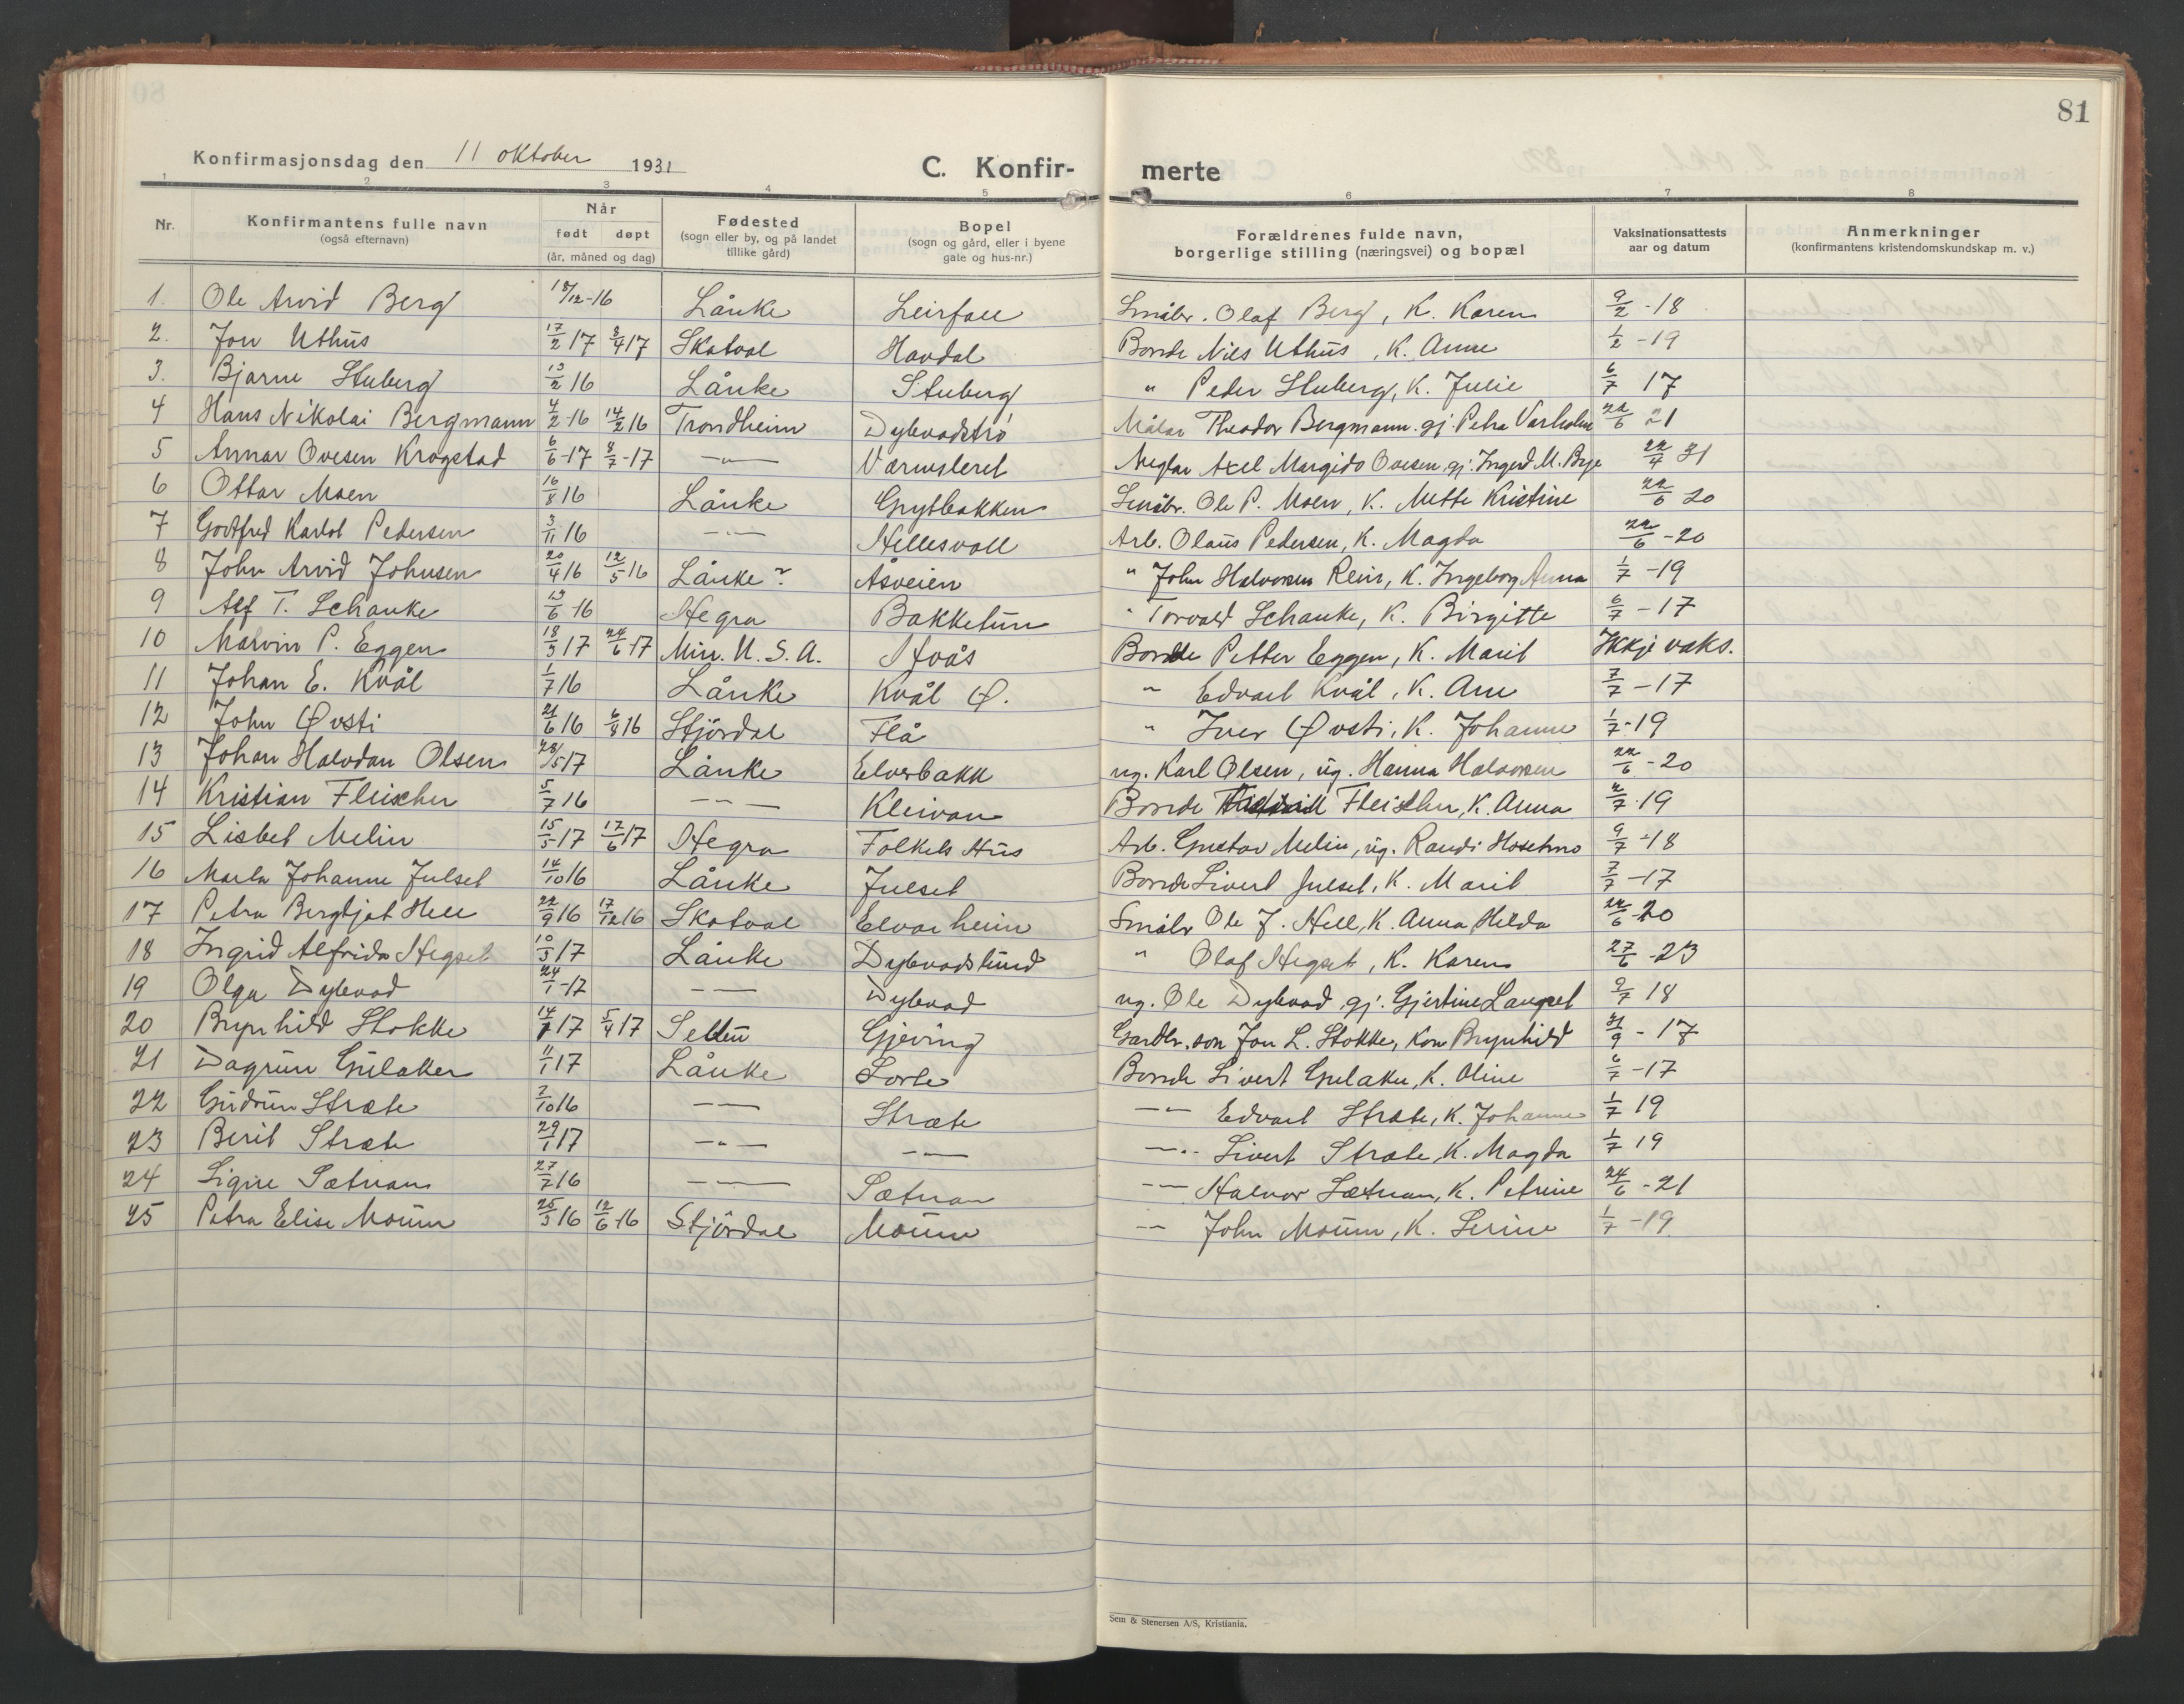 81
Konfirmasjonsdag den 11 oktober 1931
C. Konfir-
merte
1 2 3 4 5 6 7 8
Nr. Konfirmantens fulle navn (også efternavn) Når født døpt (år, måned og dag) Fødested (sogn eller by, og på landet tillike gård) Bopel (sogn og gård, eller i byene gate og hus-nr.) Forældrenes fulde navn, borgerlige stilling (næringsvei) og bopæl Vaksinationsattests aar og datum Anmerkninger (konfirmantens kristendomskundskap m. v.)
1. Ole Arvid Berg 18/12-16 Lånke Leirfall Småbr. Olaf Berg, K. Karen 9/2 -18
2. Jon Uthus 17/2 17 8/4 17 Skatval Havdal Bonde Nils Uthus, K. Anne 1/2 -19
3. Bjarne Stuberg 13/2 16 Lånke Stuberg " Peder Stuberg, K. Julie 6/7 17
4 Hans Nikolai Bergmann 4/2 16 14/2 16 Trondheim Dybvadstrø Målar Theodor Bergmann. gj. Petra Varholm 22/6 21
5 Annar Ovesen Krogstad 6/6-17 8/7-17 —"— Værnsteret Axel Margido Ovesen, gj. Ingerd M. Brye 22/4 31
6 Ottar Moen 16/8 16 Lånke Grytbakken Småbr. Ole P. Moen, K. Mette Kristine 22/6 20
7 Godtfred Karlot Pedersen 3/11 16 —"— Hellesvoll Arb. Olaus Pedersen, K. Magda 22/6 -20
8 John Arvid Johnsen 20/4 16 12/5 16 Lånke? Åsveien " John Halvorsen Rein, K. Ingeborg Anna 1/7 -19
9 Alf T. Schanke 13/6-16 Hegra Bakketun " Torvald Schanke, K. Birgitte 6/7 -17
10 Marvin P. Eggen 18/3 17 24/6 17 Min. U.S.A. Ifvås Bonde Petter Eggen, K. Marit Ikkje vaks.
11 Johan E. Kvål 1/7 16 Lånke Kvål Ø. " Edvart Kvål, K. Ane 7/7 -17
12 John Øvsti 21/6 16 6/8 16 Stjördal Flå " Iver Øvsti, K. Johanne 1/7-19
13 Johan Halvdan Olsen 28/5 17 Lånke Elverbakk ug. Karl Olsen, ug. Hanna Halvorsen 22/6 -20
14 Kristian Fleischer 5/7 16 —"— Kleivan Bonde Fleischer, K. Anna 2/7 19
15 Lisbet Melin 15/5 17 17/6 17 Hegra Folkets Hus Arb. Gustav Melin, ug. Randi Hosetmo 9/7 -18
16 Marta Johanne Julset 14/10 16 Lånke Julset Bonde Sivert Julset, K. Marit 7/7 -17
17 Petra Bergljot Hell 22/9 16 17/12 16 Skatval Elvarheim Småbr Ole J. Hell, K. Anna Helda 22/6 20
18 Ingrid Alfrida Hegset 10/3 17 Lånke Dybvadslund " Olaf Hegset, K. Karen 27/6 -23
19 Olga Dybvad 24/1-17 —"— Dybvad ug. Ole Dybvad gj. Gjertine Langset 9/7 18
20 Brynhild Stokke 14/1 17 5/4 17 Selbu Gjeving Gardbr. son Jon L. Stokke, Kon Brynhild 21/9 -17
21 Dagrun Gulaker 11/1 17 Lånke Sorte Bonde Sivert Gulaker, K. Oline 6/7 -17
22 Gudrun Stræte 2/10 16 —"— Stræte —"— Edvart Stræte, K. Johanne 1/7 19
23 Berit Stræte 29/1 17 —"— —"— —"— Sivert Stræte, K. Magda 1/7 19
24 Signe Sætnan 27/7 16 —"— Sætnan —"— Halvor Sætnan, K. Petrine 24/6 -21
25 Petra Elise Mouum 25/3 16 12/6-16 Stjördal Mouum —"— John Mouum, K. Serine 1/7 -19
Sem & Stenersen A/S, Kristiania.